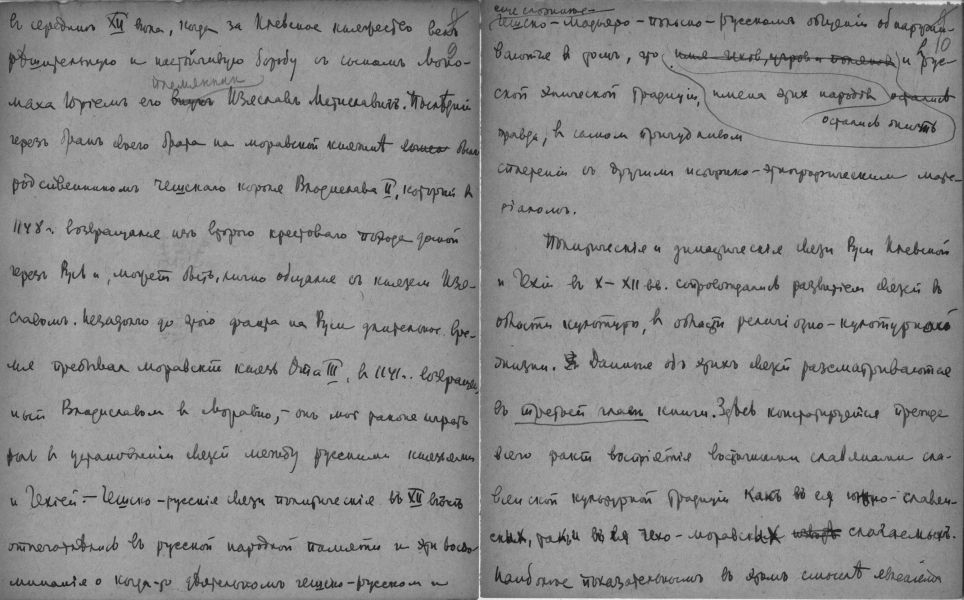 въ серединѣ XII вѣка, когда за Кіевское княжество велъ
9
рѣшительную и настойчивую борьбу съ сыномъ Моно-
племянник
маха Юріемъ его внукъ Изяславъ Мстиславичъ. Послѣдній
черезъ бракъ своего брата на моравской княжнѣ былъ
родственникомъ чешскаго короля Владислава II, который въ
1148 г. возвращаясь изъ второго крестоваго похода домой
черезъ Русь и, можетъ быть, лично общался съ княземъ Изя-
славомъ. Незадолго до этого факта на Руси длительное вре-
мя пребывал моравскій князь Ота III, в 1141 г. возвращен-
ный Владиславом в Моравію, – онъ мог также играть
роль в установленіи связей между русскими князьями
и Чехіей. – Чешско-русскія связи политическія въ XII вѣкѣ
отпечатались въ русской народной памяти и эти воспо-
минанія о когда-то дѣятельномъ чешско-русском и
еще сложнѣе
чешско-мадьяро-польско-русскомъ общеніи обнаружи-
10
ваются в томъ, что имя чехов, угров и поляков и в рус-
ской эпической традиціи, имена этих народов остались
остались жить
правда, в самом причудливом
сплетеніи съ другими историко-этнографическими мате-
ріалом.
Политическія и династическія связи Руси Кіевской
и Чехіи въ X–XII вв. сопровождались развитіем связей въ
области культуры, в области религіозно-культурной
жизни. Данные объ этихъ связях разсматриваются
въ третьей главѣ книги. Здѣсь констатируется прежде
всего фактъ воспріятія восточными славянами сла-
вянской культурной традиціи какъ въ ея южно-славян-
ских, так и въ ея чехо-моравских слагаемыхъ.
Наиболѣе показательнымъ въ этомъ смыслѣ является